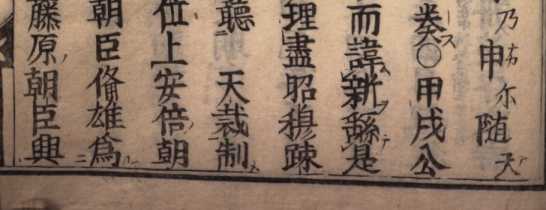 申尓随天
奏○甲戌公
而諱新繇是
理盡昭穆疎
聽　天裁制
位上安倍朝
朝臣脩雄爲
藤原朝臣興